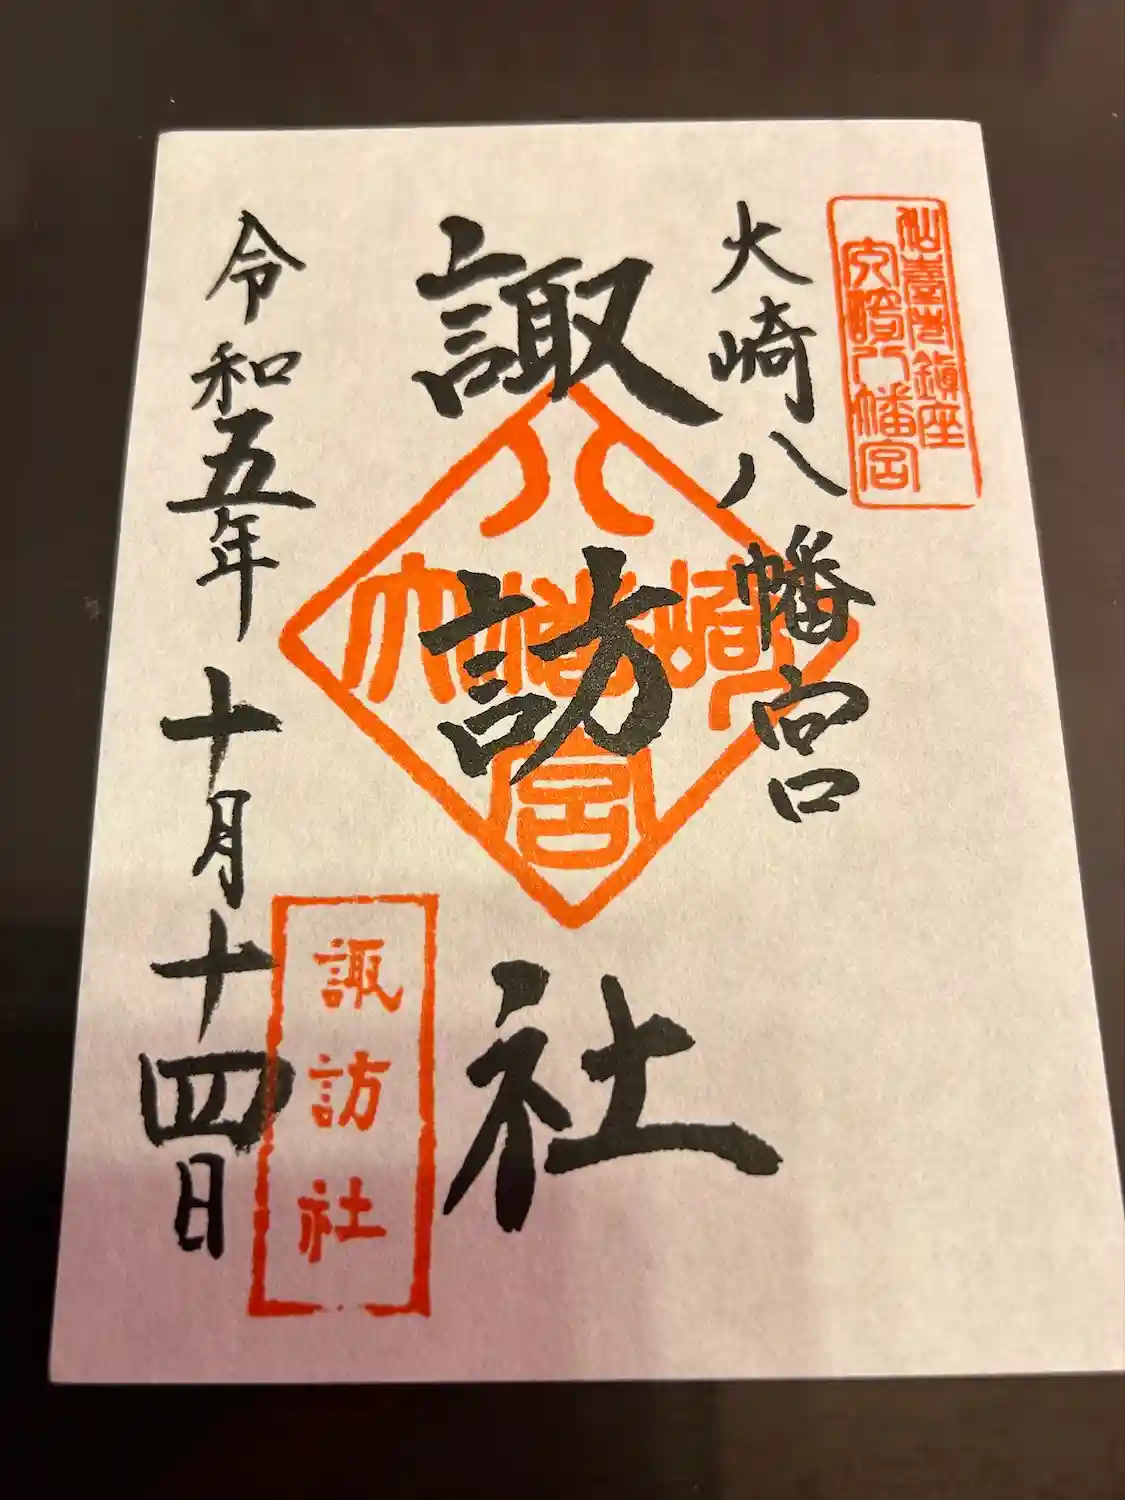 仙臺总鎮座
大崎八幡宮
大崎八幡宮
諏訪社
八
大幡崎
宮
諏訪社
令和五年十月十四日